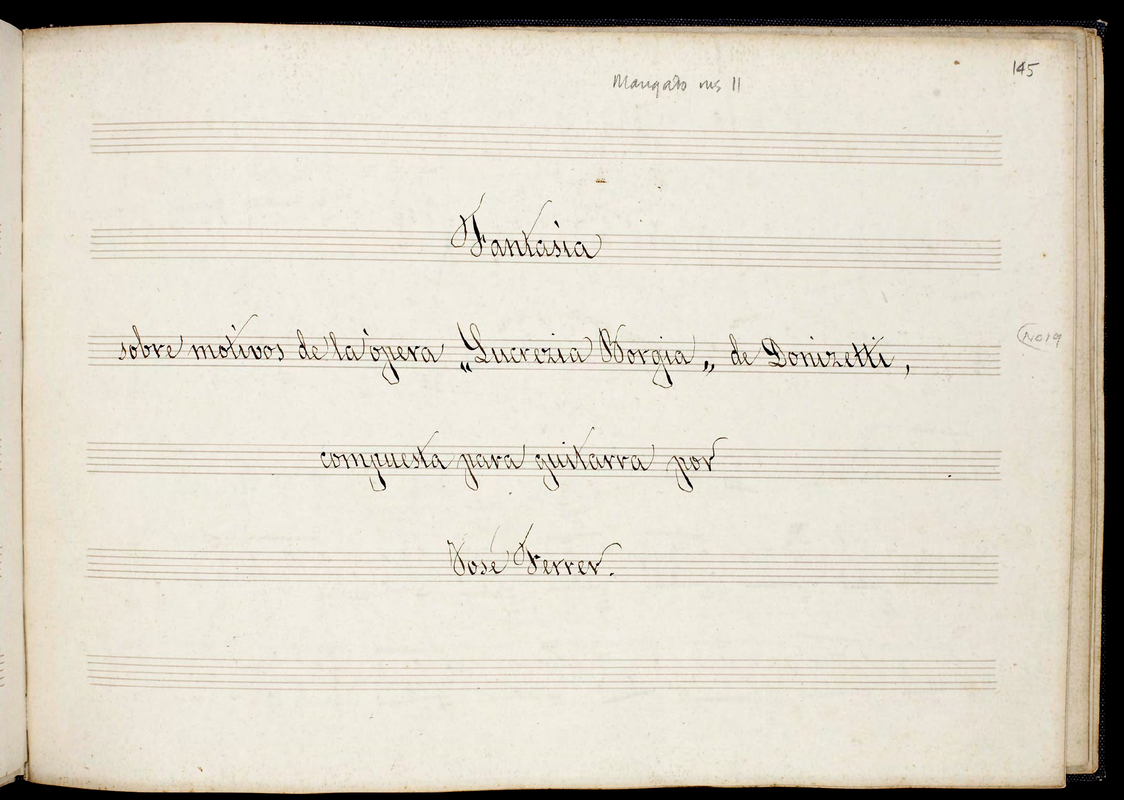 145
ms 11
Fantasia
sobre motivos de la ópera „Lucrezia Borgia„ de Donizetti,
No 19
compuesta para guitarra por
José Ferrer.